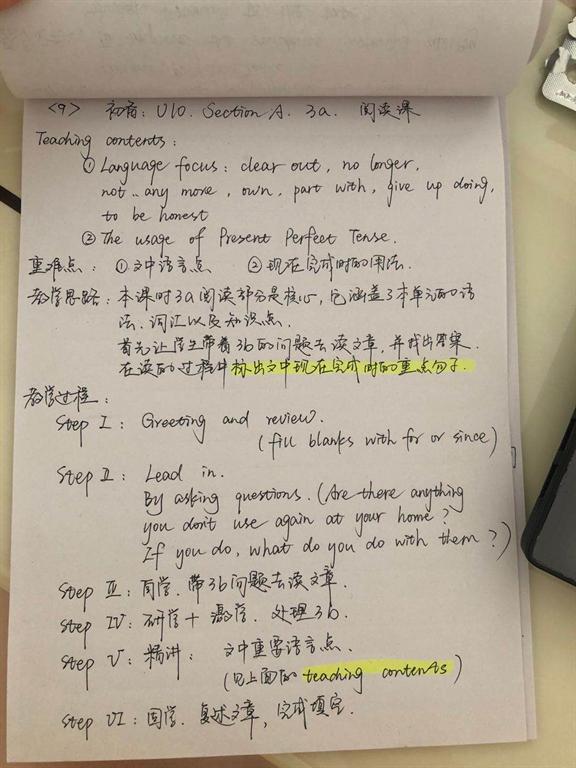 <9> 初首: U10. Section A. 3a. 阅读课
Teaching contents:
① Language focus: clear out, no longer,
not..any more, own, part with, give up doing,
to be honest
② The usage of Present Perfect Tense.
重难点: ①文中语言点 ②现在完成时的用法.
教学思路: 本课时3a阅读部分是核心, 它涵盖了本单元的语
法、词汇以及知识点.
首先让学生带着3b的问题去读文章, 并找出答案.
在读的过程中标出文中现在完成时的重点句子.
教学过程:
Step I: Greeting and review.
(fill blanks with for or since)
Step II: Lead in.
By asking questions. (Are there anything
you don't use again at your home?
If you do, what do you do with them?)
Step III: 自学. 带3b问题去读文章.
Step IV: 研学+激学. 处理3b.
Step V: 精讲: 文中重要语言点.
(见上面的 teaching contents)
Step VI: 固学. 复述文章, 完成填空.